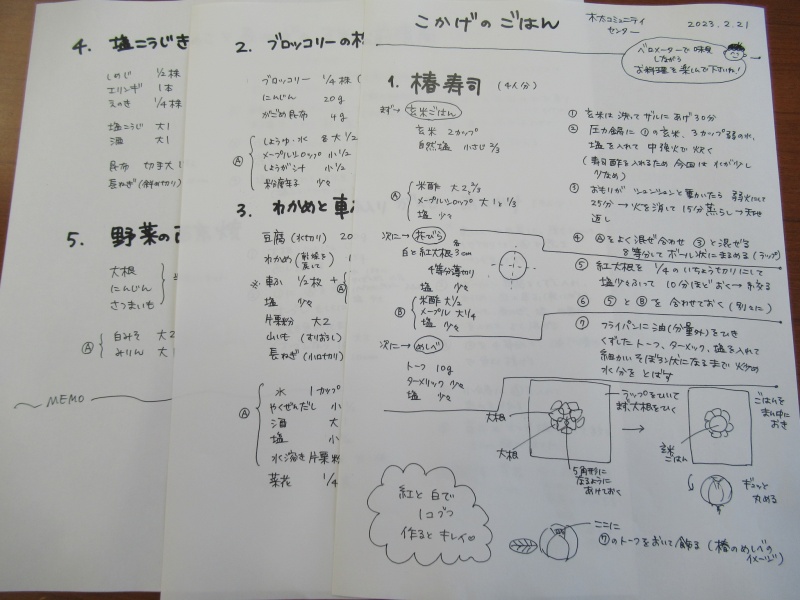 こかげの ごはん
木太コミュニティ
センター
2023.2.21
ベロメーターで味見
しながら
お料理を楽しんで下さいね!
1. 椿寿司 (4人分)
まず→ 玄米ごはん
玄米 2カップ
自然塩 小さじ2/3
Ⓐ
米酢 大2,2/3
メープルシロップ 大1と1/3
塩 少々
次に→ 花びら
白と紅大根 各3cm
4等分薄切り
塩 少々
Ⓑ
米酢 大1/2
メープル 大1/4
塩 少々
次に→ めしべ
トーフ 10g
ターメリック 少々
塩 少々
① 玄米は洗ってザルにあげ30分
② 圧力鍋に①の玄米、3カップ弱の水、
塩を入れて中強火で炊く
(寿司酢を入れるため今回は水が少し
少なめ)
③ おもりがシュンシュンと動いたら 弱火にして
25分→火を消して15分蒸らし→天地
返し
④ Ⓐをよく混ぜ合わせ ③と混ぜる
8等分してボール状にまるめる(ラップ)
⑤ 紅大根を1/4のいちょう切りにして
塩少々ふって 10分ほどおく→水きる
⑥ ⑤とⒷを合わせておく(別々に)
⑦ フライパンに油(分量外)をひき
くずしたトーフ、ターメリック、塩を入れて
細かいそぼろ状になるまで
水分をとばす
ラップをひいて
まず、大根をひく
大根
大根
5角形に
なるように
あけておく
→
ごはんを
まん中に
おき
玄米
ごはん
ギュッと
丸める
紅と白で
1コづつ
作るとキレイ
ここに
⑦のトーフをおいて飾る(椿のめしべの
イメージ)
2. ブロッコリーの
ブロッコリー 1/4株
にんじん 20g
がごめ昆布 4g
Ⓐ
しょうゆ・水 各大1/2
メープルシロップ 小1/2
しょうが汁 小1/2
粉唐辛子 少々
3. わかめと車
豆腐(水切り) 20
わかめ
車ふ 1/2枚 +
塩 少々
片栗粉 大2
山いも(すりおろし)
長ねぎ(小口切り)
Ⓐ
水 1カップ
やくぜんだし 小
酒 大
塩 小
水溶き片栗粉
菜花 1/4
4. 塩こうじき
しめじ 1/2株
エリンギ 1本
えのき 1/4株
塩こうじ 大1
酒 大1
昆布 切手大
長ねぎ(斜め切り)
5. 野菜の
大根
にんじん
さつまいも
Ⓐ
白みそ 大2
みりん 大1
MEMO